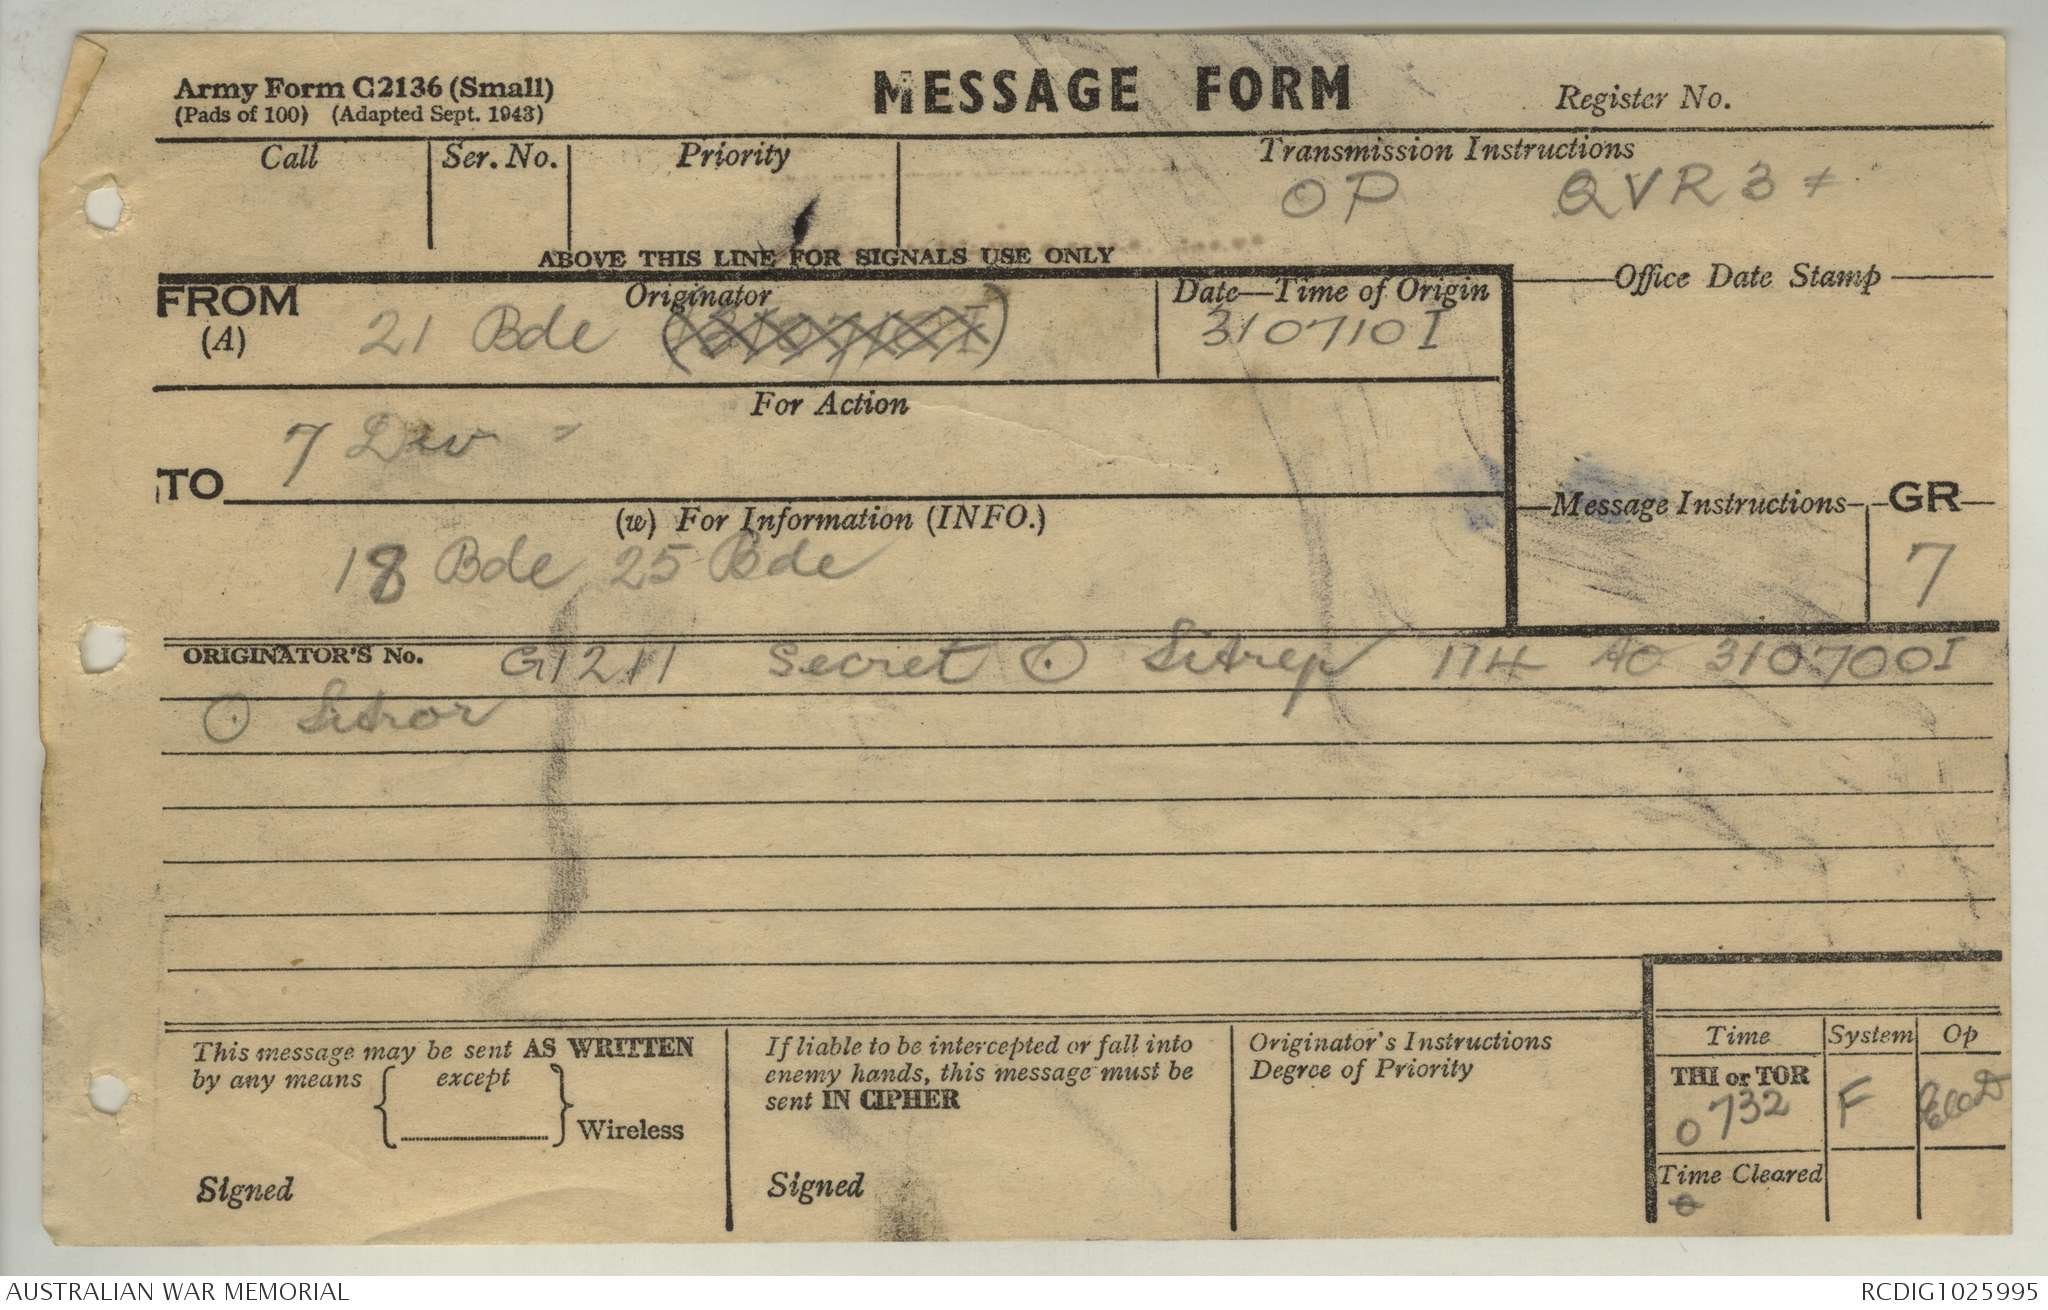 Army Form C2136 (Small)
(Pads of 100) (Adapted Sept. 1943)
MESSAGE FORM
Register No.
Call
Ser. No.
Priority
Transmission Instructions
OP QVR 3 +
ABOVE THIS LINE FOR SIGNALS USE ONLY
FROM
(A)
Originator
21 Bde (310710I)
Date—Time of Origin
310710I
Office Date Stamp
For Action
7 Div =
TO
(w) For Information (INFO.)
18 Bde 25 Bde
Message Instructions
GR
7
ORIGINATOR'S No. G1211 Secret ⊙ Sitrep 114 AO 310700I
⊙ Sitror
This message may be sent AS WRITTEN
by any means { except } Wireless
Signed
If liable to be intercepted or fall into
enemy hands, this message must be
sent IN CIPHER
Signed
Originator's Instructions
Degree of Priority
Time
System
Op
THI or TOR
0732
F
Time Cleared
AUSTRALIAN WAR MEMORIAL
RCDIG1025995